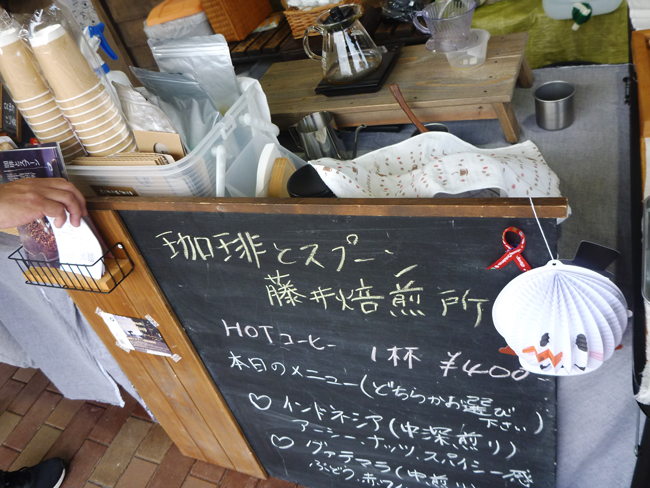 珈琲とスプーン
藤井焙煎所
HOTコーヒー 1杯 ¥400
本日のメニュー(どちらかお選び下さい)
♡ インドネシア(中深煎り)
アーシー・ナッツ・スパイシー感
♡ グァテマラ(中煎り)
ぶどう.赤ワイ